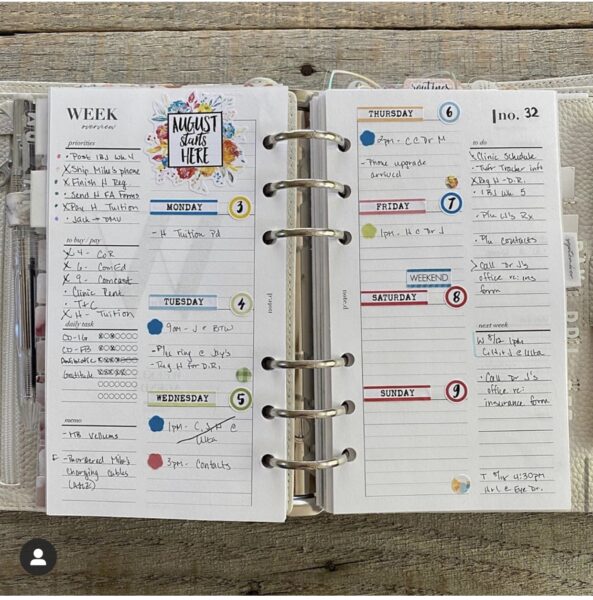 WEEK
overview
priorities
Post IBJ Wk 4
X Ship Mike's phone
X Finish H Reg
Send H FA Forms
X Pay H Tuition
Jack → DMV
to buy / pay
X 4 - CoR
X 6 - ComEd
X 9 - Comcast
Clinic Rent
T+C
X H - Tuition
daily task
CO-16
CO-FB
Antibiotic
Gratitude
memo
- HB Vellums
- Reordered Mike's
Charging Cables
AUGUST
starts
HERE
MONDAY 3
- H Tuition Pd
TUESDAY 4
9am - J @ BTW
- Plu ring @ Jay's
- Reg H for D.R.
WEDNESDAY 5
1pm - C, J, H @
Ulta
3pm - Contacts
note:d
routines
THURSDAY 6
2pm - CC Dr M
- Phone upgrade
arrived
FRIDAY 7
1pm - H C Dr J
WEEKEND
SATURDAY 8
SUNDAY 9
note:d
no. 32
to do
X Clinic Schedule
Tracker info
X Reg H - D.R.
IBJ Wk 5
Plu Rx
Plu contacts
> Call Dr J's
office re: ins
form
next week
W 8/12 1pm
C, H + J @ Ulta
Call Dr J's
office re:
insurance form
4:30pm
@ Eye Dr.